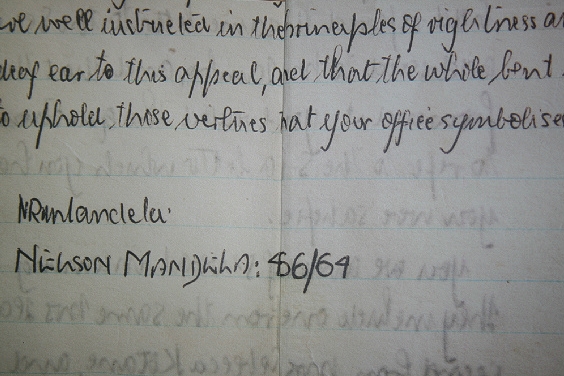 we well instructed in the principles of rightness a
deaf ear to this appeal, and that the whole bent
to uphold those vertues hat your office symbolise
NRMandela.
NELSON MANDELA: 466/64